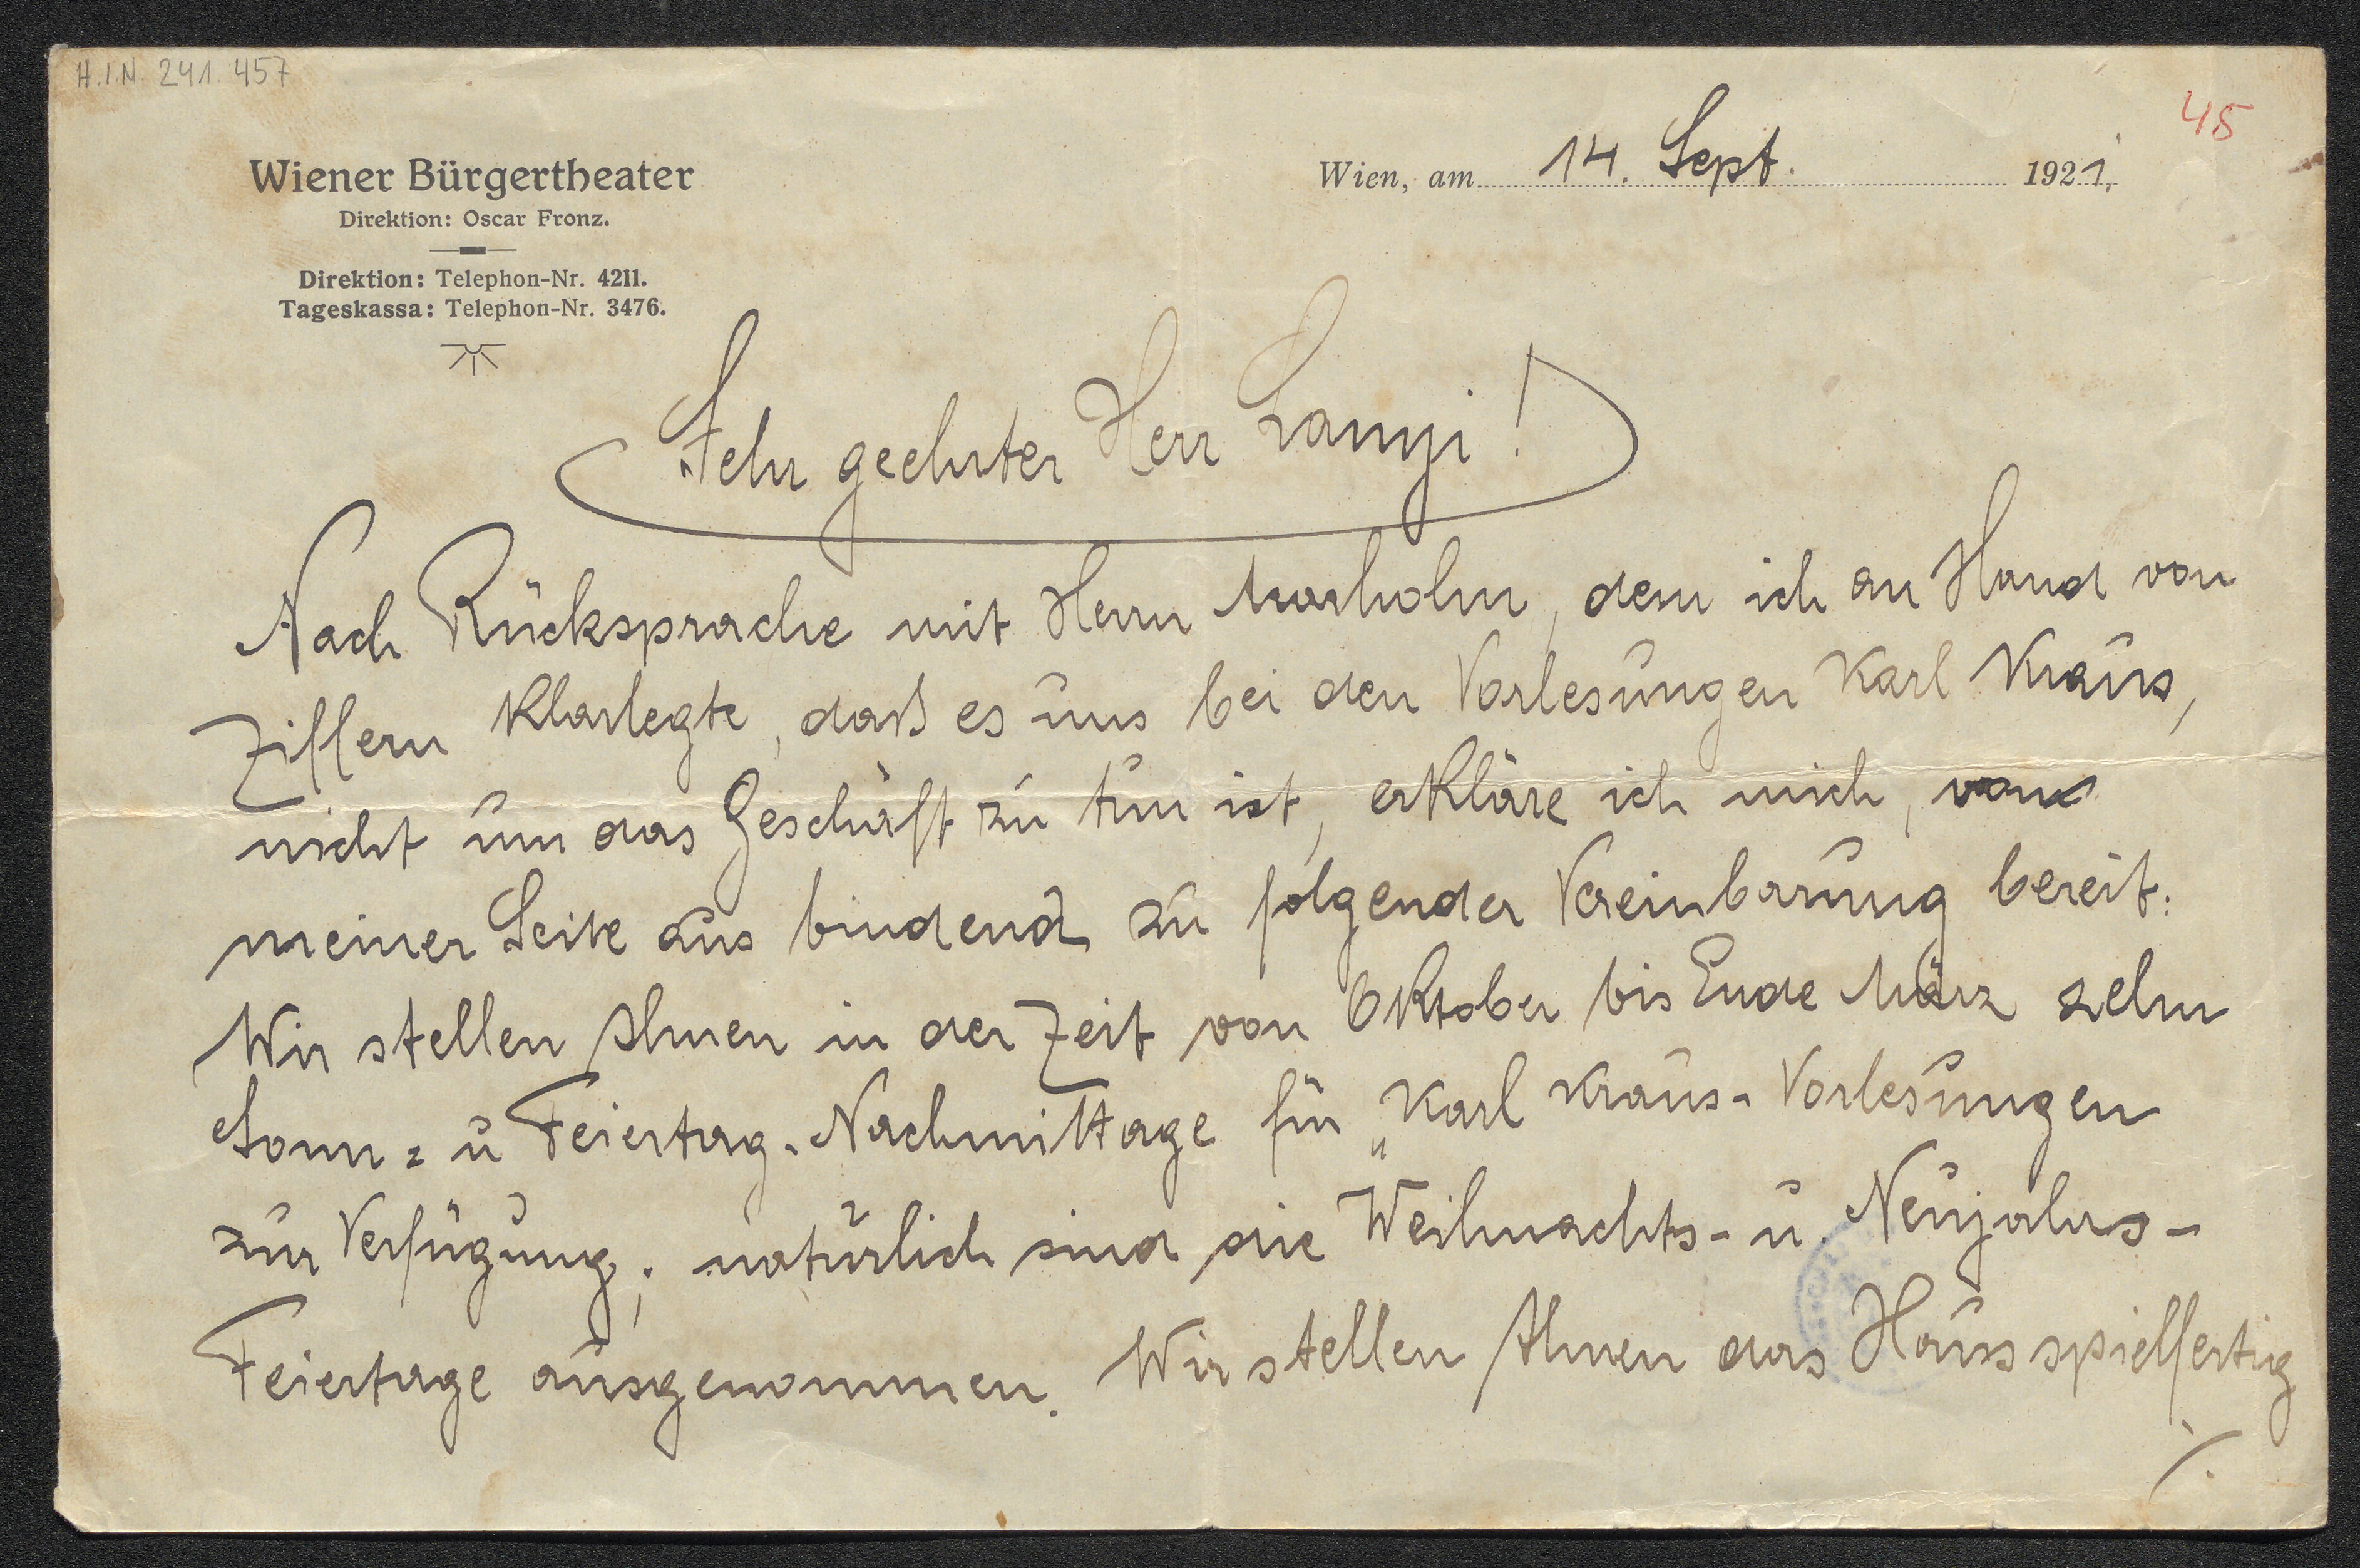 H.I.N. 241.457
45
Wiener Bürgertheater
Direktion: Oscar Fronz.
Direktion: Telephon-Nr. 4211.
Tageskassa: Telephon-Nr. 3476.
Wien, am 14. Sept. 1921.
Sehr geehrter Herr Lanyi!
Nach Rücksprache mit Herrn Marholm, dem ich an Hand von
Ziffern klarlegte, daß es uns bei den Vorlesungen Karl Kraus,
nicht um das Geschäft zu tun ist, erkläre ich mich, von
meiner Seite aus bindend zu folgender Vereinbarung bereit:
Wir stellen Ihnen in der Zeit von Oktober bis Ende März zehn
Sonn= u Feiertag-Nachmittage für „Karl Kraus-Vorlesungen
zur Verfügung; natürlich sind die Weihnachts- u. Neujahrs-
Feiertage ausgenommen. Wir stellen Ihnen das Haus spielfertig
./.